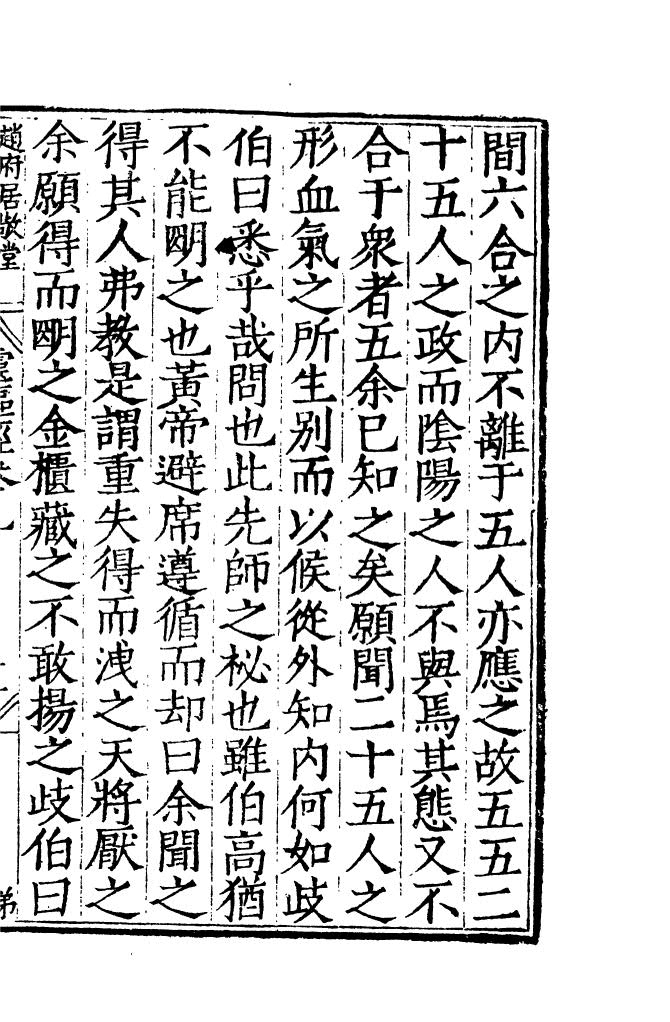 間六合之内不離于五人亦應之故五五二
十五人之政而隂陽之人不與焉其態又不
合于衆者五余已知之矣願聞二十五人之
形血氣之所生别而以候從外知内何如歧
伯曰悉乎哉問也此先師之秘也雖伯高猶
不能眀之也黃帝避席遵循而却曰余聞之
得其人弗教是謂重失得而洩之天將厭之
余願得而眀之金櫃藏之不敢揚之歧伯曰
趙府居敬堂